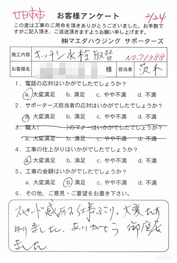 廿日市市 お客様アンケート 2/24
この度は工事のご用命を頂きありがとうございました。お手数で
すがご記入頂き、ご返送頂きますようお願い申し上げます。
㈱マエダハウジング サポーターズ
施工内容 キッチン水栓取替
様 担当者 茨木
1. 電話の応対はいかがでしたでしょうか？
a.大変満足 b.満足 c.やや不満 d.不満
2. サポーターズ担当者の応対はいかがでしたでしょうか？
a.大変満足 b.満足 c.やや不満 d.不満
3. 職人( )のマナーはいかがでしたでしょうか？
a.大変満足 b.満足 c.やや不満 d.不満
4. 工事の仕上がりはいかがでしたでしょうか？
a.大変満足 b.満足 c.やや不満 d.不満
5. 工事の金額はいかがでしたでしょうか？
a.大変満足 b.満足 c.やや不満 d.不満
6. その他、ご意見・ご要望をお書き下さい。
スピード感ある仕事ぶり、大変たすか
りました。ありがとう御座居
ました